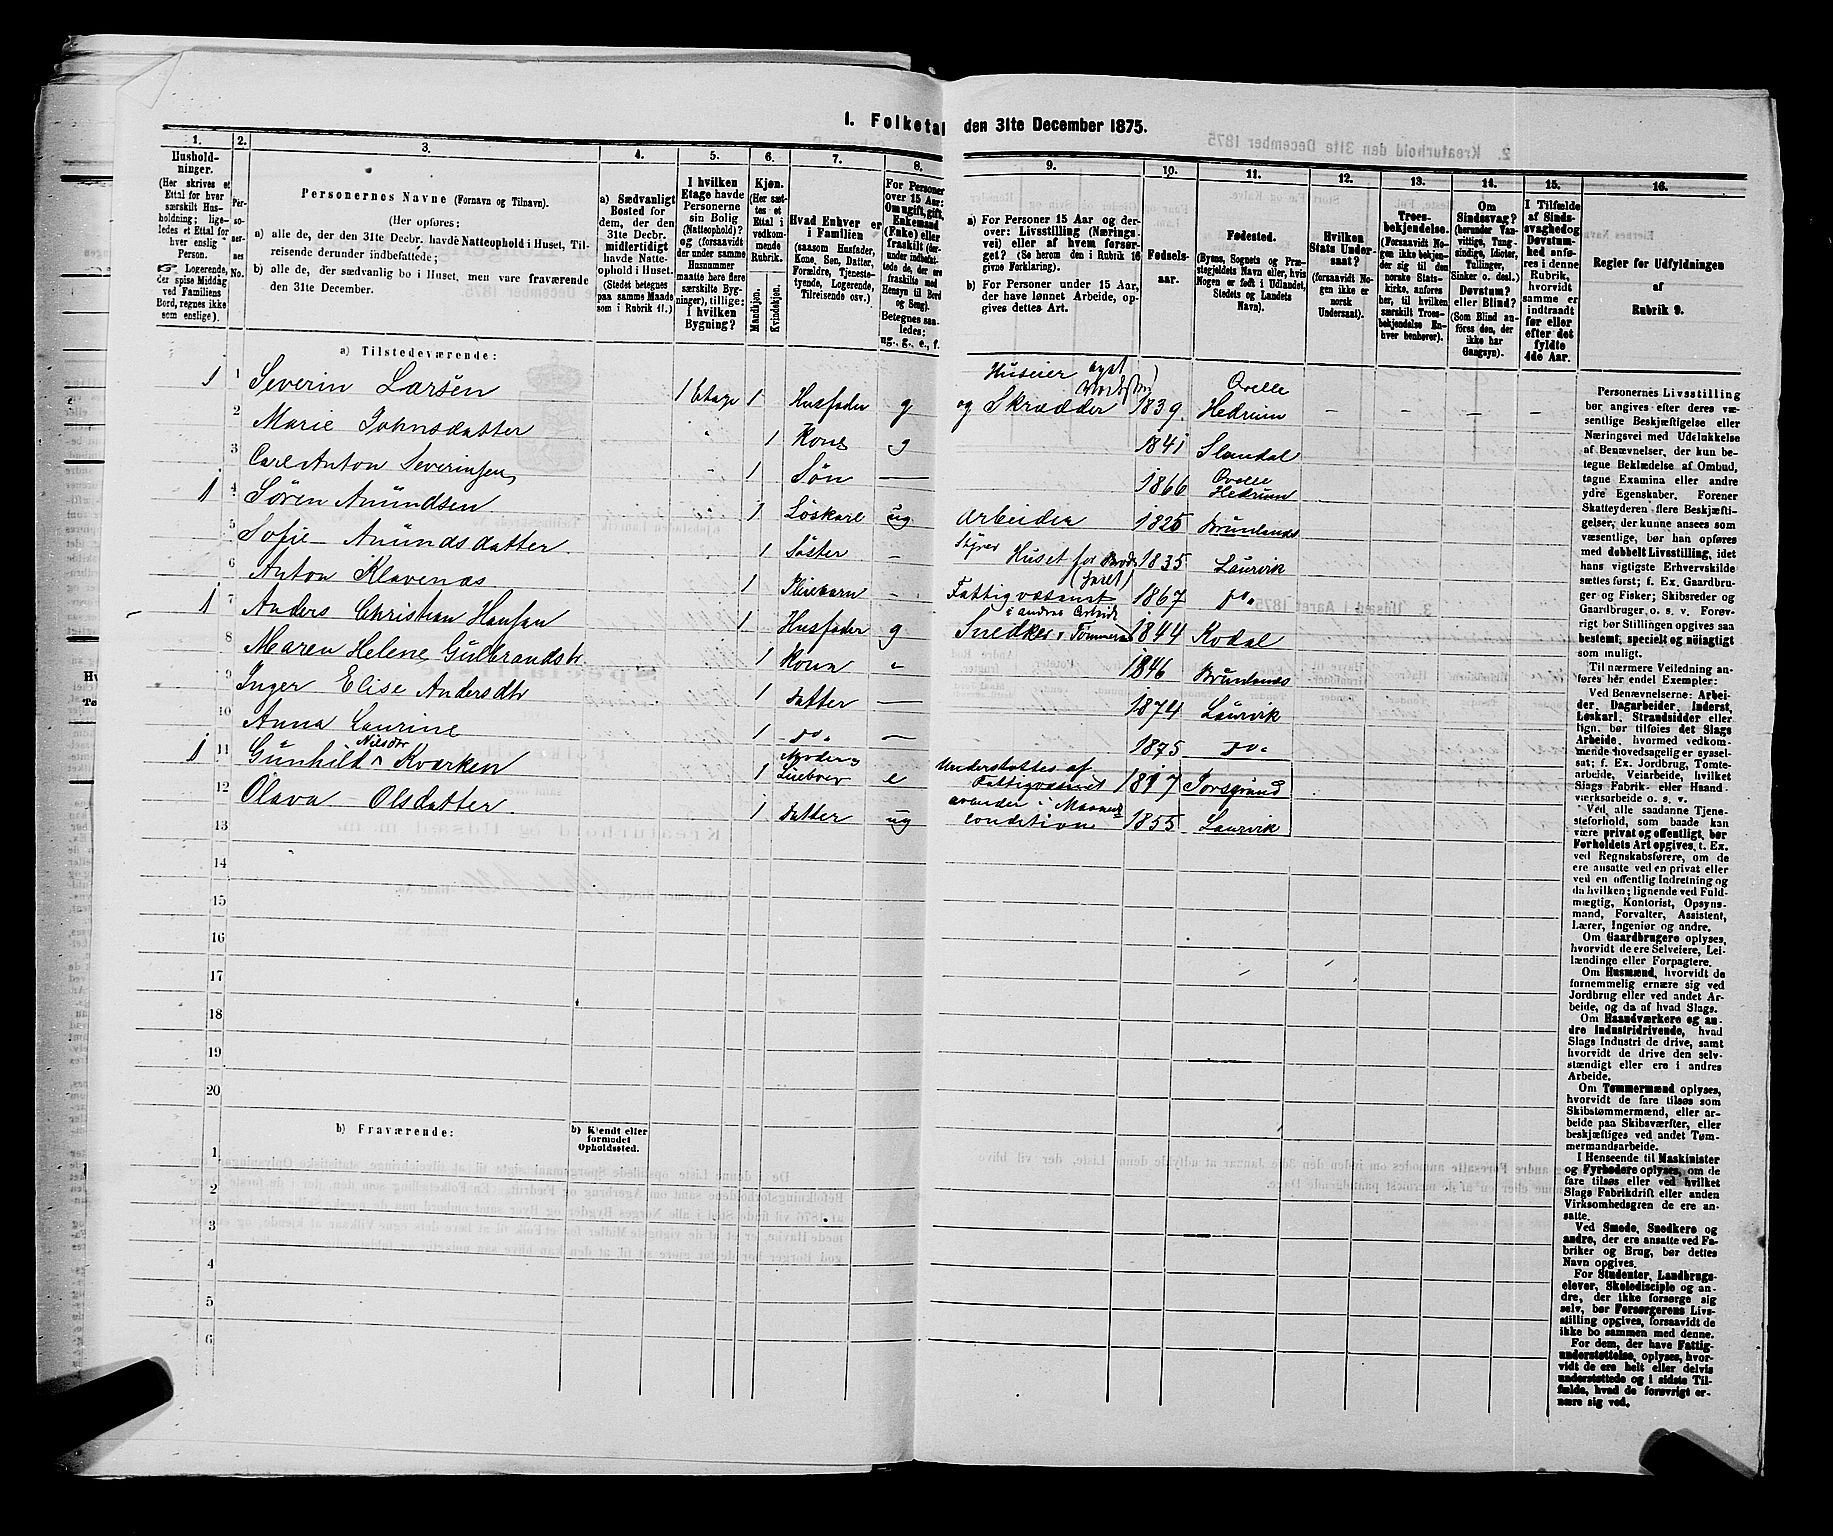 1. Folketal den 31te December 1875.
1. Husholdninger. (Her skrives et Ettal for hver særskilt Husholdning; ligeledes et Ettal for hver enslig Person. Logerende, der spise Middag ved Familiens Bord, regnes ikke som enslige).
2. Personernes No.
3. Personernes Navne (Fornavn og Tilnavn).
(Her opføres:
a) alle de, der den 31te Decbr. havde Natteophold i Huset, Tilreisende derunder indbefattede;
b) alle de, der sædvanlig bo i Huset, men vare fraværende den 31te December.
4. a) Sædvanligt Bosted for dem, der den 31te Decbr. midlertidigt havde Natteophold i Huset. (Stedet betegnes paa samme Maade som i Rubrik 11.)
5. I hvilken Etage havde Personerne sin Bolig (Natteophold)? og (forsaavidt der under samme Husnummer maatte være flere særskilte Bygninger), tillige: I hvilken Bygning?
6. Kjøn. (Her sættes et Ettal i vedkommende Rubrik.
Mandkjøn. Kvindekjøn.
7. Hvad Enhver er i Familien (saasom Husfader, Kone, Søn, Datter, Forældre, Tjenestetyende, Logerende, Tilreisende osv.)
8. For Personer over 15 Aar: Om ugift, gift, Enkemand (Enke) eller fraskilt
Betegnes saaledes: ug., g., e., f.
9. a) For Personer 15 Aar og derover: Livsstilling (Næringsvei) eller af hvem forsørget? (Se herom den i Rubrik 16 givne Forklaring).
b) For Personer under 15 Aar, der have lønnet Arbeide, opgives dettes Art.
10. Fødselsaar.
11. Fødested. (Byens, Sognets og Præstegjeldets Navn eller, hvis Nogen er født i Udlandet, Stedets og Landets Navn).
12. Hvilken Stats Undersaat? (forsaavidt Nogen ikke er norsk Undersaat).
13. Troesbekjendelse. (Forsaavidt Nogen ikke bekjender sig til den norske Statskirke, anføres her, til hvilken særskilt Troesbekjendelse Enhver henhører).
14. Om Sindssvag? (herunder Vanvittige, Tungsindige, Idioter, Tullinger, Sinker o. desl.) Døvstum? eller Blind? (Som Blind anføres den, der ikke har Gangsyn).
15. I Tilfælde af Sindssvaghed og Døvstumhed anføres i denne Rubrik, hvorvidt samme er indtraadt før eller efter det fyldte 4de Aar.
16. Regler for Udfyldningen af Rubrik 9.
a) Tilstedeværende:
1 1 Severin Larsen 1 Etage 1 Husfader g Huseier og Skrædder 1839 Qvelle Hedrum – – – –
2 Marie Johnsdatter 1 Kone g 1841 Slemdal
3 Carl Anton Severinsen 1 Søn — 1866 Qvelle Hedrum
1 4 Søren Amundsen 1 Løskarl ug Arbeider 1825 Brunlanes
5 Sofie Amundsdatter 1 Søster – Styrer Huset for Brode 1835 Laurvik
6 Anton Klavenæs 1 Pleiebarn – Fattigvæsenet 1867 do.
1 7 Anders Christian Hansen 1 Husfader g Snedker 1844 Kodal
8 Maren Helene Gulbrandsdtr 1 Kone " 1846 Brunlanes
9 Inger Elise Andersdtr 1 Datter — 1874 Laurvik
10 Anna Laurine 1 do. — 1875 do.
1 11 Gunhild Nilsdtr Kvarken 1 Moder e Understøttes af Fattigvæsenet 1817 Porsgrund
12 Olava Olsdatter 1 Datter ug condition 1855 Laurvik
13
14
15
16
17
18
19
20
b) Fraværende: b) Kjendt eller formodet Opholdssted.
1
2
3
4
5
6
Personernes Livsstilling
bør angives efter deres væsentlige
Beskjæftigelse eller
Næringsvei med Udelukkelse
af Benævnelser, der kun betegne
Beklædelse af Ombud,
tagne Examina eller andre
ydre Egenskaber. Forener
Skatteyderen flere Beskjæftigelser,
der kunne ansees som
væsentlige, bør han opføres
med dobbelt Livsstilling, idet
hans vigtigste Erhvervskilde
sættes først; f. Ex. Gaardbruger
og Fisker; Skibsreder og
Gaardbruger o. s. v. Forøvrigt
bør Stillingen opgives saa
bestemt, specielt og nøiagtigt
som muligt.
Til nærmere Veiledning anføres
her endel Exempler:
Ved Benævnelserne: Arbeider,
Dagarbeider, Inderst,
Løskarl, Strandsidder eller
lign. bør tilføies det Slags
Arbeide, hvormed vedkommende
hovedsagelig er sysselsat;
f. Ex. Jordbrug, Tomtearbeide,
Veiarbeide, hvilket
Slags Fabrik- eller Haandværksarbeide
o. s. v.
Ved alle saadanne Tjenesteforhold,
som baade kan
være privat og offentligt, bør
Forholdets Art opgives, t. Ex.
ved Regnskabsførere, om de
ere ansatte ved en privat eller
ved en offentlig Indretning og
da hvilken; lignende ved Fuldmægtig,
Kontorist, Opsynsmand,
Forvalter, Assistent,
Lærer, Ingeniør og andre.
Om Gaardbrugere oplyses,
hvorvidt de ere Selveiere, Leilændinge
eller Forpagtere.
Om Husmænd, hvorvidt de
fornemmelig ernære sig ved
Jordbrug eller ved andet Arbeide,
og da af hvad Slags.
Om Haandværkere og andre
Industridrivende, hvad
Slags Industri de drive, samt
hvorvidt de drive den selvstændigt
eller ere i andres
Arbeide.
Om Tømmermænd oplyses,
hvorvidt de fare tilsøs som
Skibstømmermænd, eller arbeide
paa Skibsværfter, eller
beskjæftiges ved andet Tømmermandsarbeide.
I Henseende til Maskinister
og Fyrbødere oplyses, om de
fare tilsøs eller ved hvilket
Slags Fabrikdrift eller anden
Virksomhedsgren de ere ansatte.
Ved Smede, Snedkere og
andre, der ere ansatte ved Fabriker
og Brug, bør dettes
Navn opgives.
For Studenter, Landbrugselever,
Skoledisciple og andre,
der ikke forsørge sig
selv, bør Forsørgerens Livsstilling
opgives, forsaavidt de
ikke bo sammen med denne.
For dem, der have Fattigunderstøttelse,
oplyses, hvorvidt
de ere helt eller delvis
understøttede og i sidste Tilfælde,
hvad de forøvrigt ernære
sig ved.